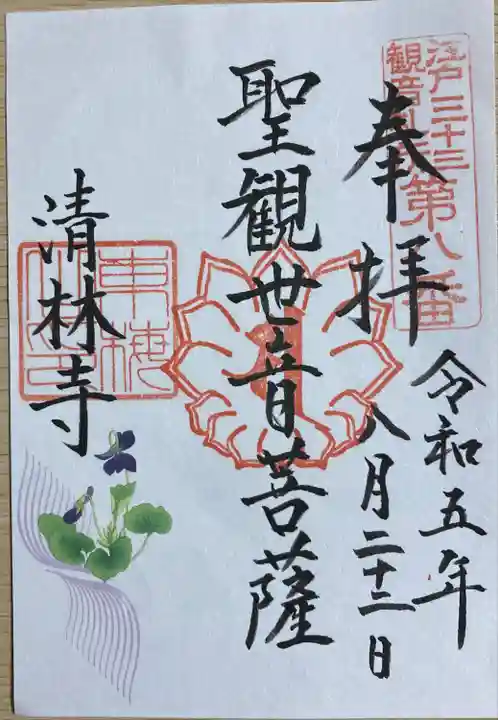 江戸三十三
観音札所
第八番
奉拝
令和五年
八月二十二日
聖観世音菩薩
清林寺